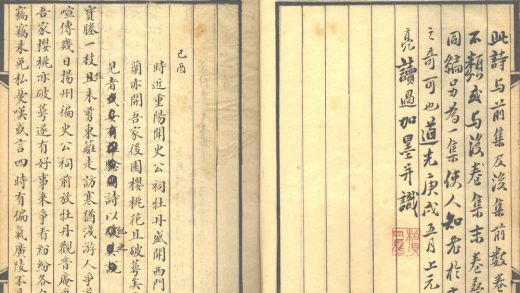 此詩与前集及後集前数卷
不類或与後卷集末卷
同編另為一集使人知老於
之奇可也道光庚戌五月上元
亮讀過加墨并識
己酉
時近重陽聞史公祠牡丹盛開西門
蘭亦開吾家後園櫻桃花且破萼矣
見者詩以
寶勝一枝且未剪東籬走訪寒猶淺游人争
喧傳幾日揚州徧史公祠前放牡丹觀音庵
吾家櫻桃亦破萼遂有好事来争看紛紛各
竊竊未免私憂嘆或言四時有偏氣廣陵不